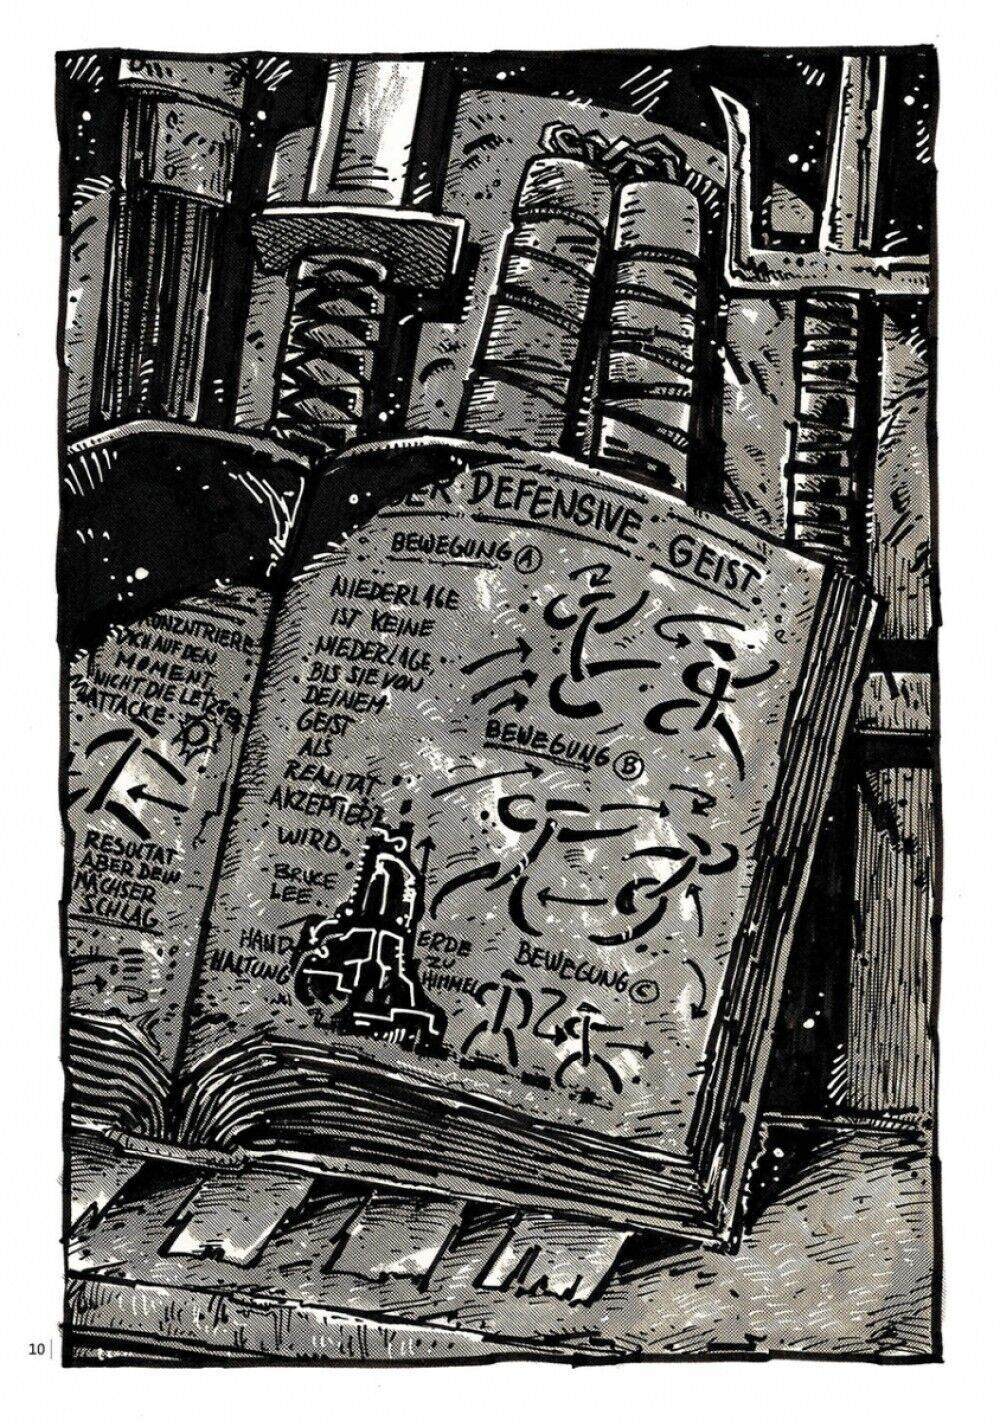 KONZENTRIERE
DICH AUF DEN
MOMENT
NICHT DIE LETZTE
ATTACKE
RESULTAT
ABER DEIN
NÄCHSER
SCHLAG
DER DEFENSIVE GEIST
BEWEGUNG A
NIEDERLAGE
IST KEINE
NIEDERLAGE,
BIS SIE VON
DEINEM
GEIST
ALS
REALITÄT
AKZEPTIERT
WIRD..
BRUCE
LEE..
HAND
HALTUNG
ERDE
ZU
HIMMEL
BEWEGUNG B
BEWEGUNG C
10